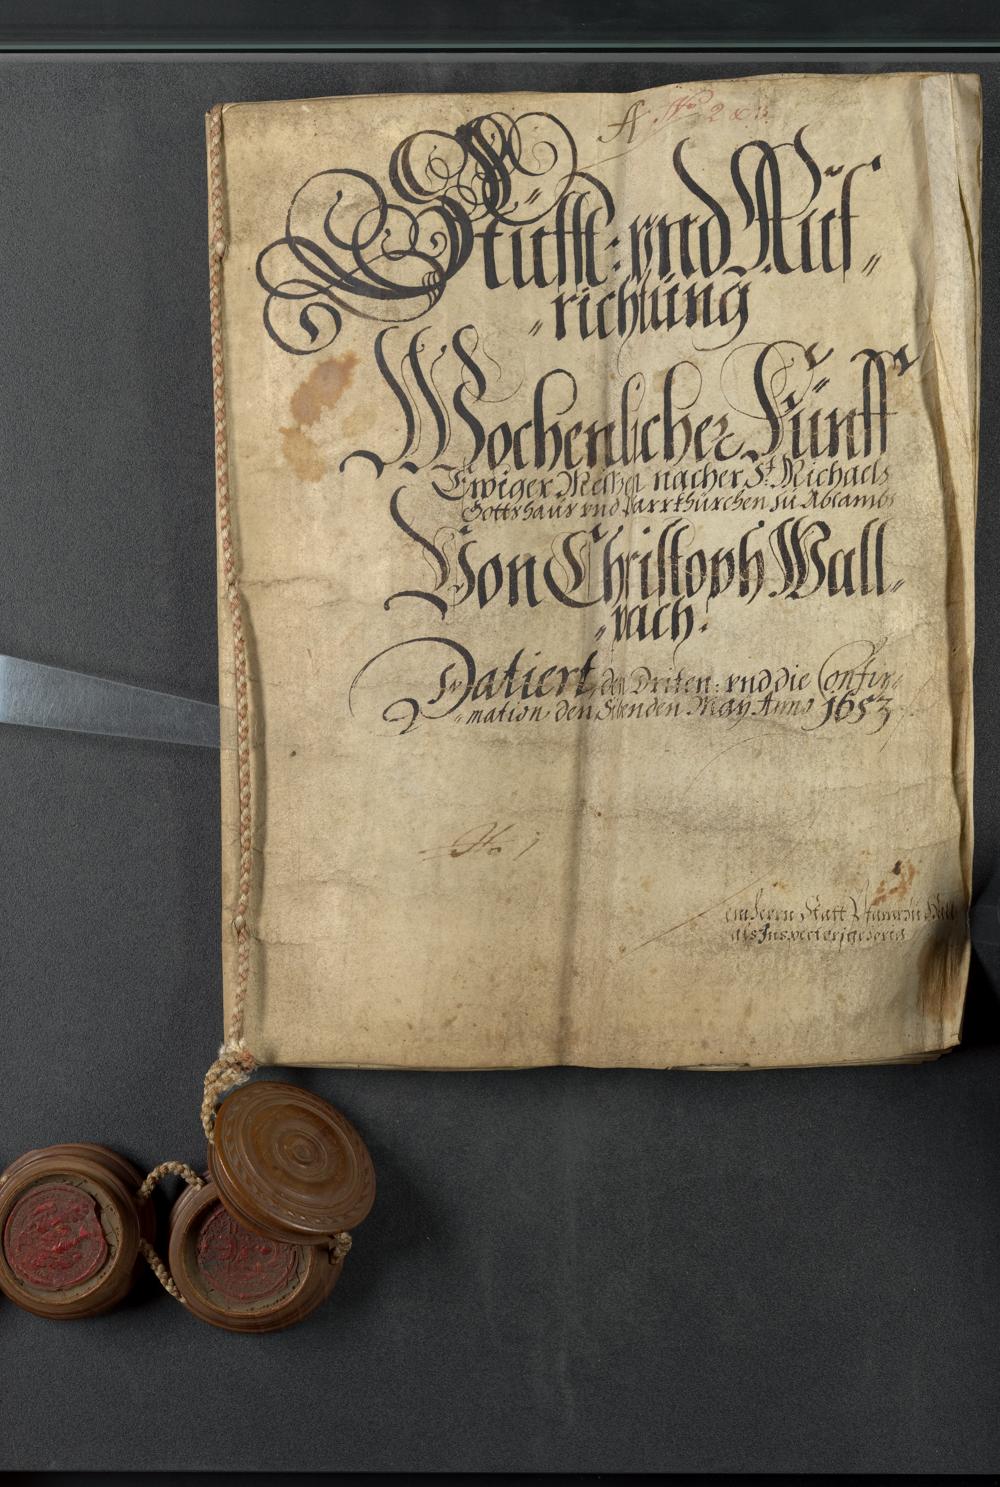 A No 2
Stüfft: vnd Auf„
„richtüng
Wochenlicher Fünff
Ewiger Messen nacher St Michaels
Gottshaus vnd Pfarrkhürchen zu Absambs
Von Christoph Wall„
„rach:
Datiert, den Driten: vnd die Confir„
„mation, den Sibenden May Anno 1653
No 1
Statt Pfarr zu Hall
als Inspectori gehörig